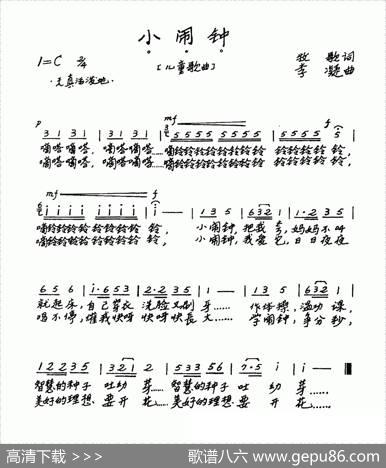 小闹钟
[儿童歌曲]
1=C 2/4
天真活泼地
牧歌词
李凝曲
p mf f
3 1 3 1 | 3 1 3 1 | 5 5 5 5 5 5 5 5 | 5 5 5 5 5 5 5 5 | 5
嘀嗒嘀嗒,嘀嗒嘀嗒……嘀铃铃铃铃铃铃铃铃铃铃铃铃,
嘀嗒嘀嗒,嘀嗒嘀嗒……嘀铃铃铃铃铃铃铃铃铃铃铃铃,
mf f
i i i i i i i i | i i i i i i i i | i | i — | 1 3 5 | 6 3 2 1 | 1 · 2 3 5 |
嘀铃铃铃铃铃铃铃铃铃, 小闹钟,把我 妈妈不叫
嘀铃铃铃铃铃铃铃铃铃, 小闹钟,我爱它,日日夜夜
6 5 6 | i · 6 5 3 | 2 1 2 3 | 1 — | 1 3 5 | 6 3 2 1 |
就起床,自己穿衣 洗脸又刷牙…… 作体操,温功课,
鸣不停,催我快呀快呀快长大…… 学闹钟,争分秒,
1 2 2 3 5 | 3 2 1 2 | 5 5 3 3 5 6 | 7 · 5 i | i — ‖
智慧的种子 吐幼芽……智慧的种子 吐幼芽……
美好的理想 要开花……美好的理想 要开花……
高清下载 >>>
歌谱八六 www.gepu86.com